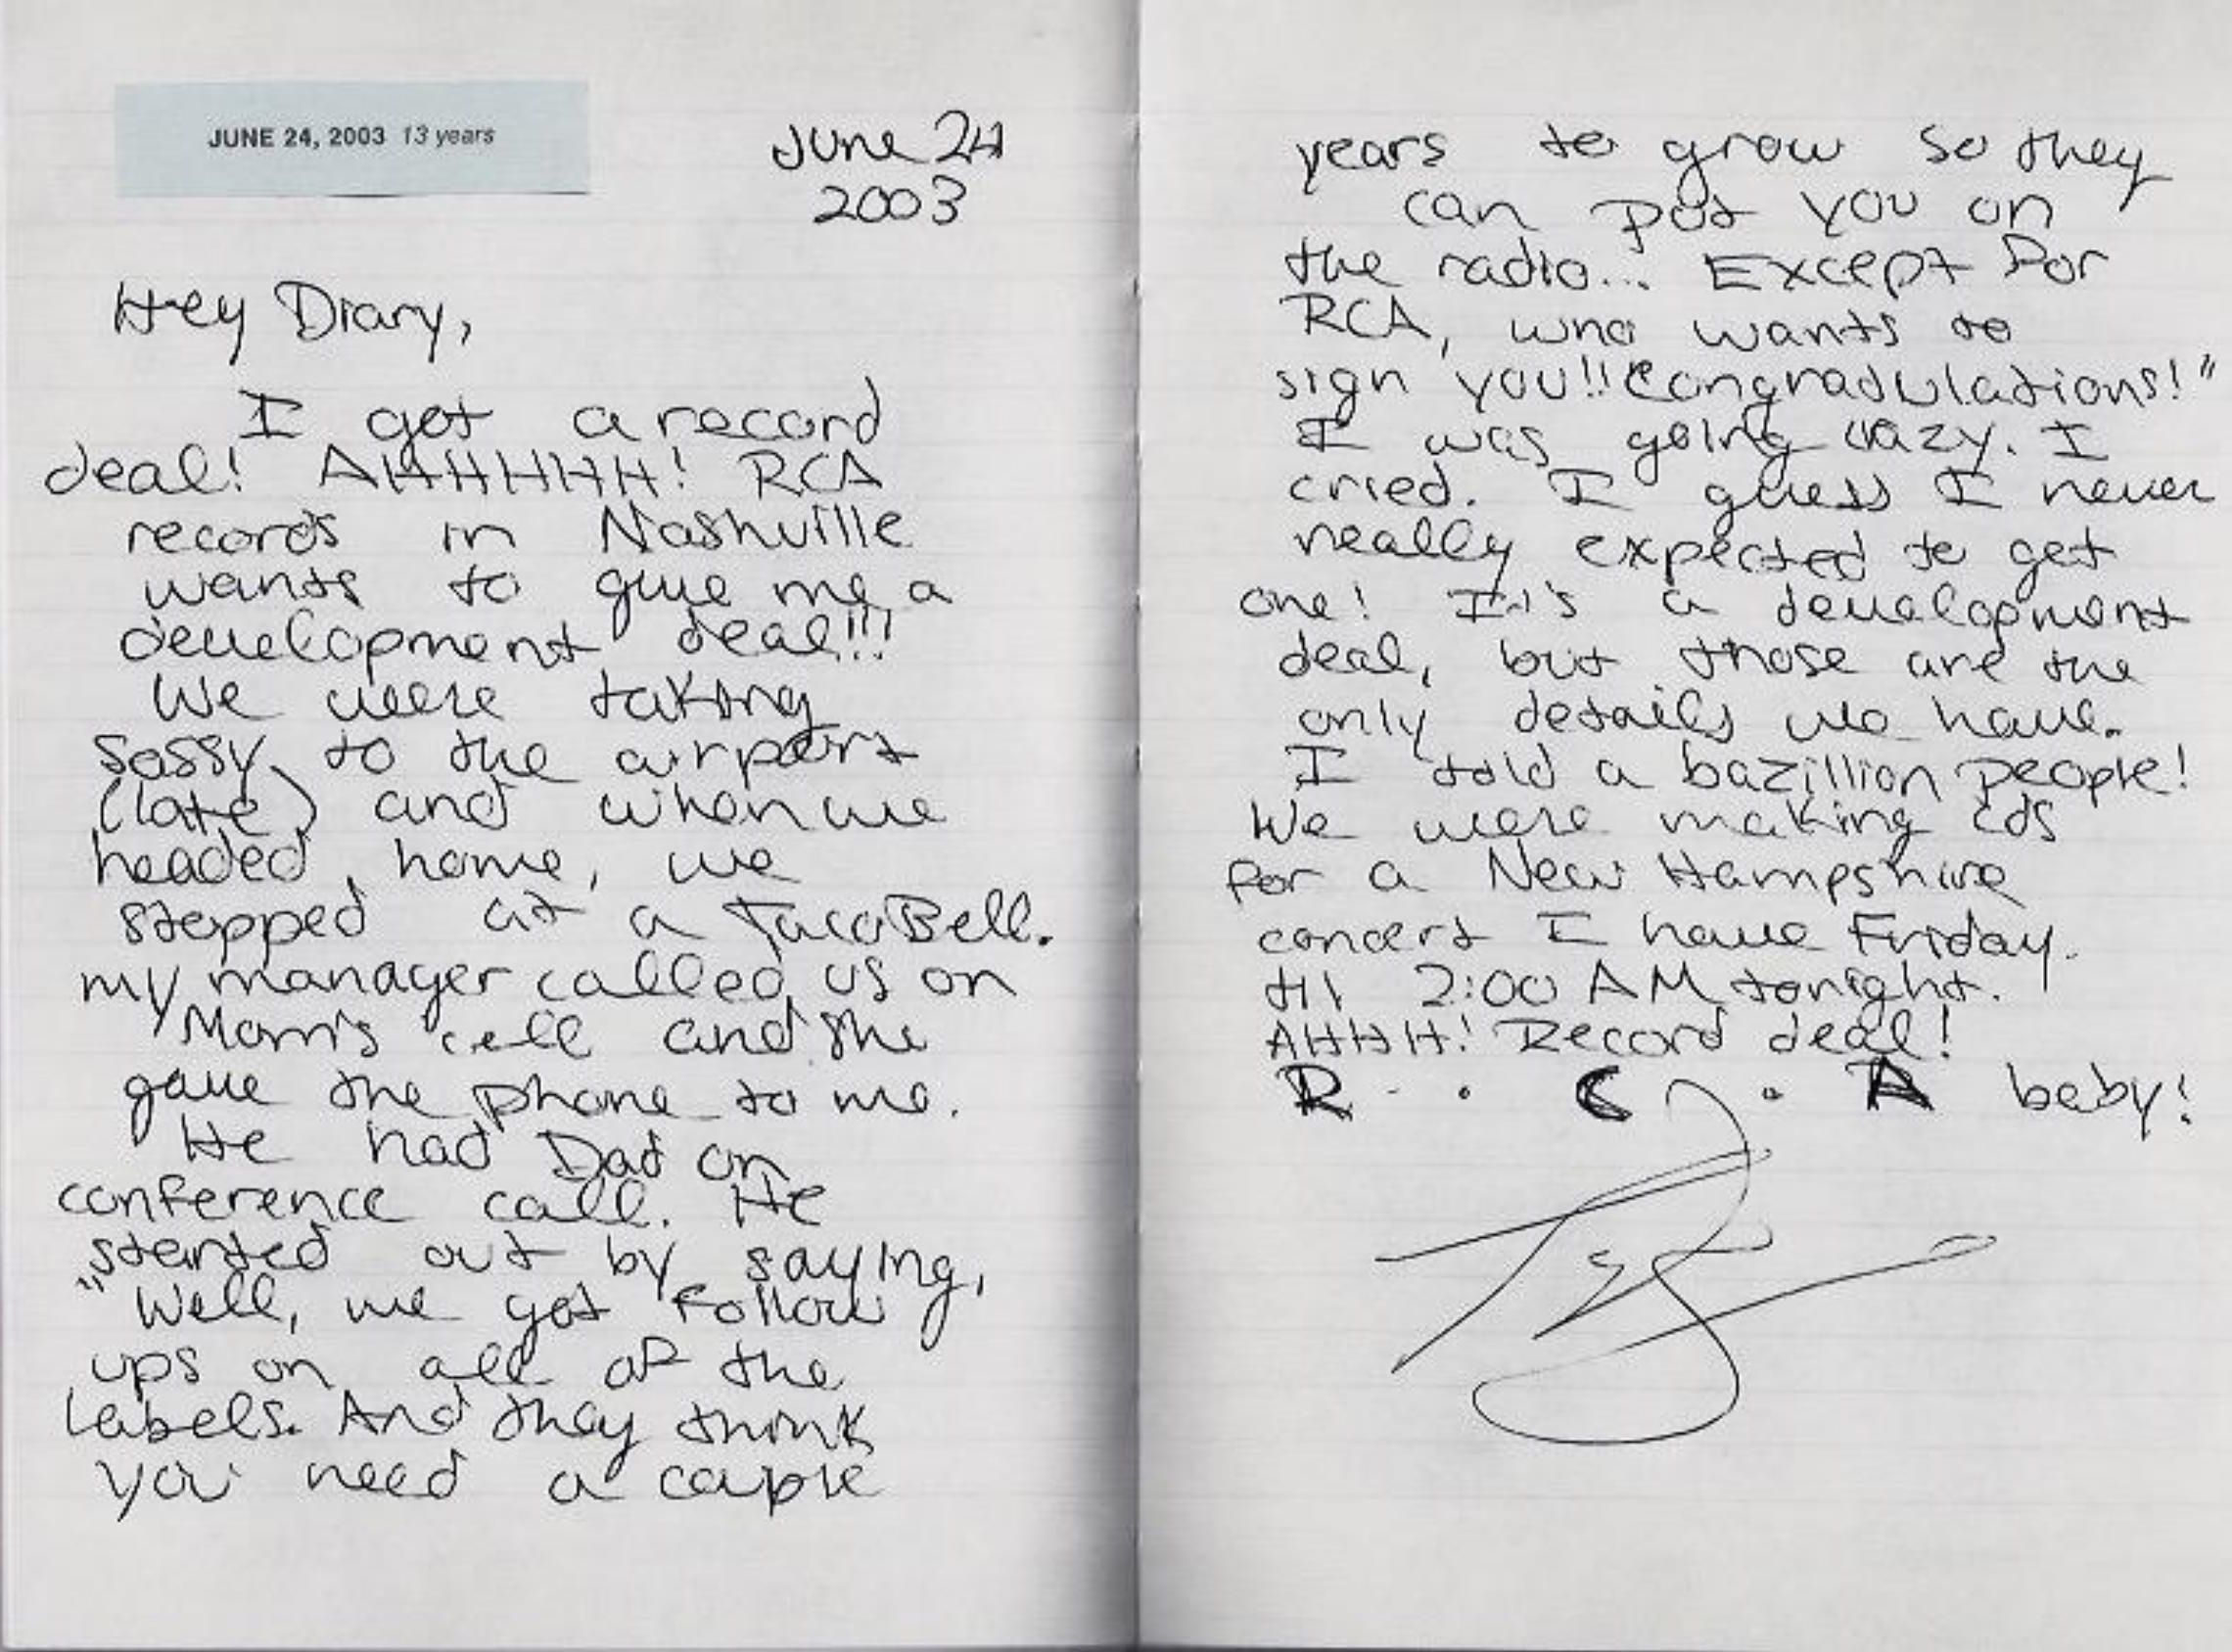 JUNE 24, 2003 13 years
June 24
2003
Hey Diary,
I got a record
deal! AHHHHHH! RCA
records in Nashville
wants to give me a
development deal!!!
We were taking
Sassy to the airport
(late) and when we
headed home, we
stopped at a Taco Bell.
my manager called us on
Mom's cell and she
gave the phone to me.
He had Dad on
conference call. He
started out by saying,
"Well, we got follow
ups on all of the
labels. And they think
you need a couple
years to grow so they
can put you on
the radio... Except for
RCA, who wants to
sign you!! Congradulations!"
I was going crazy. I
cried. I guess I never
really expected to get
one! It's a development
deal, but those are the
only details we have.
I told a bazillion people!
We were making cds
for a New Hampshire
concert I have Friday.
til 2:00 AM tonight.
AHHH! Record deal!
R · C · A baby!